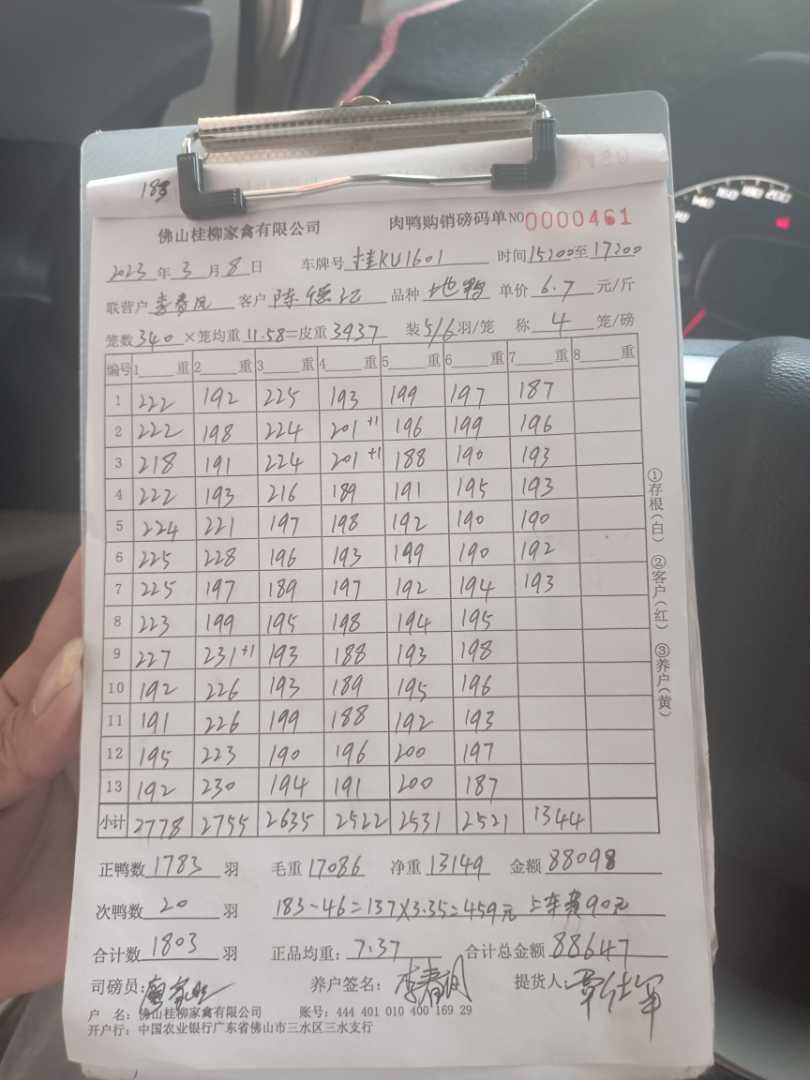 183
佛山桂柳家禽有限公司 肉鸭购销磅码单 NO 0000461
2023年3月8日 车牌号 桂KU1601 时间15200至17200
联营户 李春凤 客户 陈德江 品种 地鸭 单价 6.7 元/斤
笼数 340 ×笼均重 11.58=皮重 3937 装5/6羽/笼 称 4 笼/磅
编号 1 重 2 重 3 重 4 重 5 重 6 重 7 重 8 重
1 222 192 225 193 199 197 187
2 222 198 224 201+1 196 199 196
3 218 191 224 201+1 188 190 193
4 222 193 216 189 191 195 193
5 224 221 197 198 192 190 190
6 225 228 196 193 199 190 192
7 225 197 189 197 192 194 193
8 223 199 195 198 194 195
9 227 231+1 193 188 193 198
10 192 226 193 189 195 196
11 191 226 199 188 192 193
12 195 223 190 196 200 197
13 192 230 194 191 200 187
小计 2778 2755 2635 2522 2531 2521 1344
①存根(白) ②客户(红) ③养户(黄)
正鸭数 1783 羽 毛重 17086 净重 13149 金额 88098
次鸭数 20 羽 183-46=137×3.35=459元 上车费90元
合计数 1803 羽 正品均重: 7.37 合计总金额 88647
司磅员: 养户签名: 提货人:
户 名: 佛山桂柳家禽有限公司 账号: 444 401 010 400 169 29
开户行: 中国农业银行广东省佛山市三水区三水支行
160 180 200